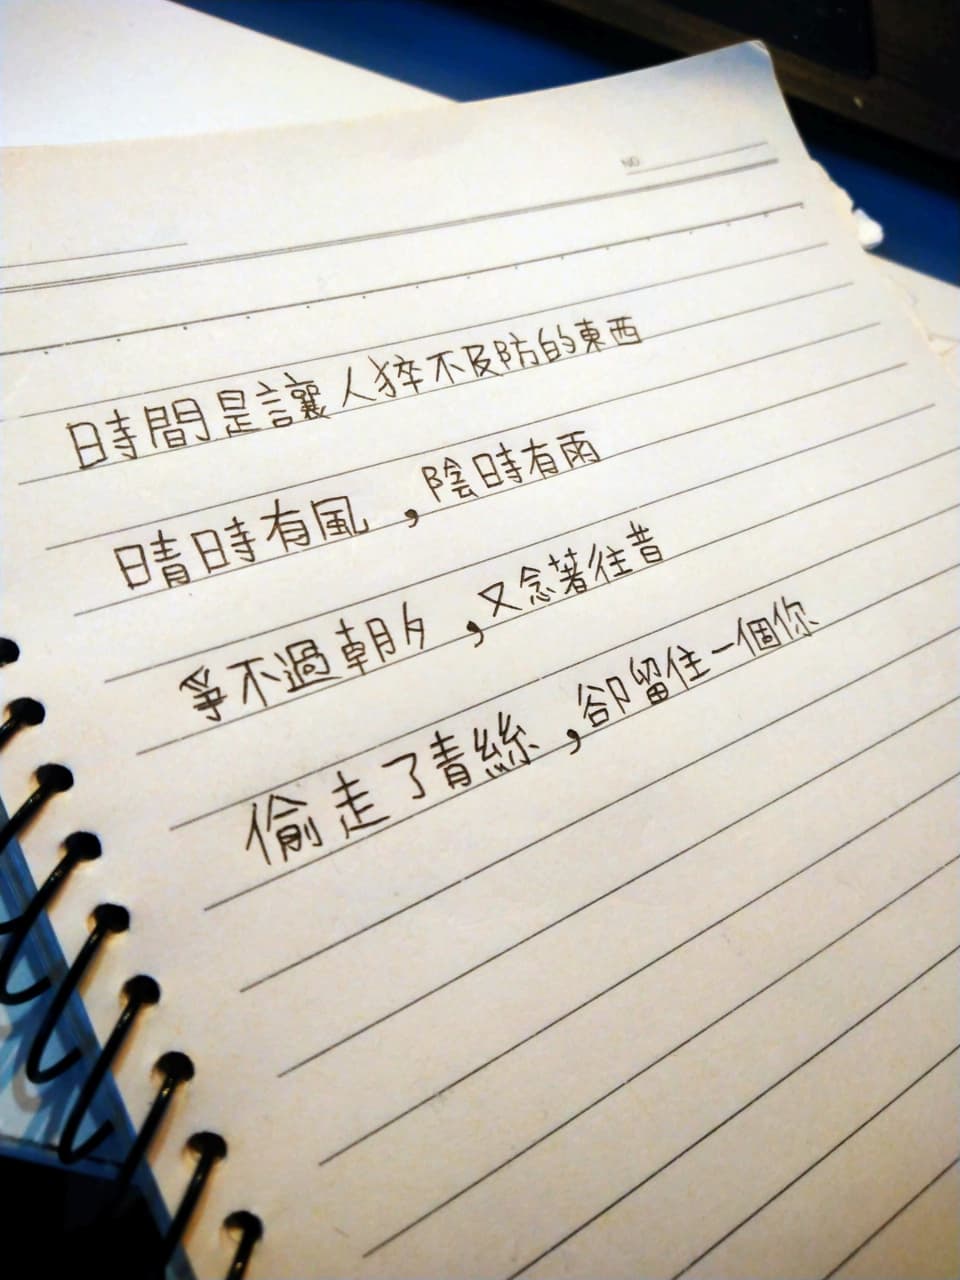 NO
時間是讓人猝不及防的東西
晴時有風，陰時有雨
爭不過朝夕，又念著往昔
偷走了青絲，卻留住一個你